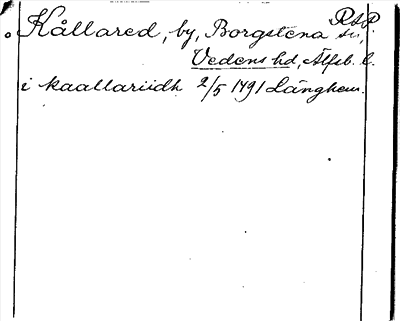 Kållared, by, Borgstena sn,
Vedens hd, Älfsb. l.
i kaallariidh 2/5 1491 Långhem.